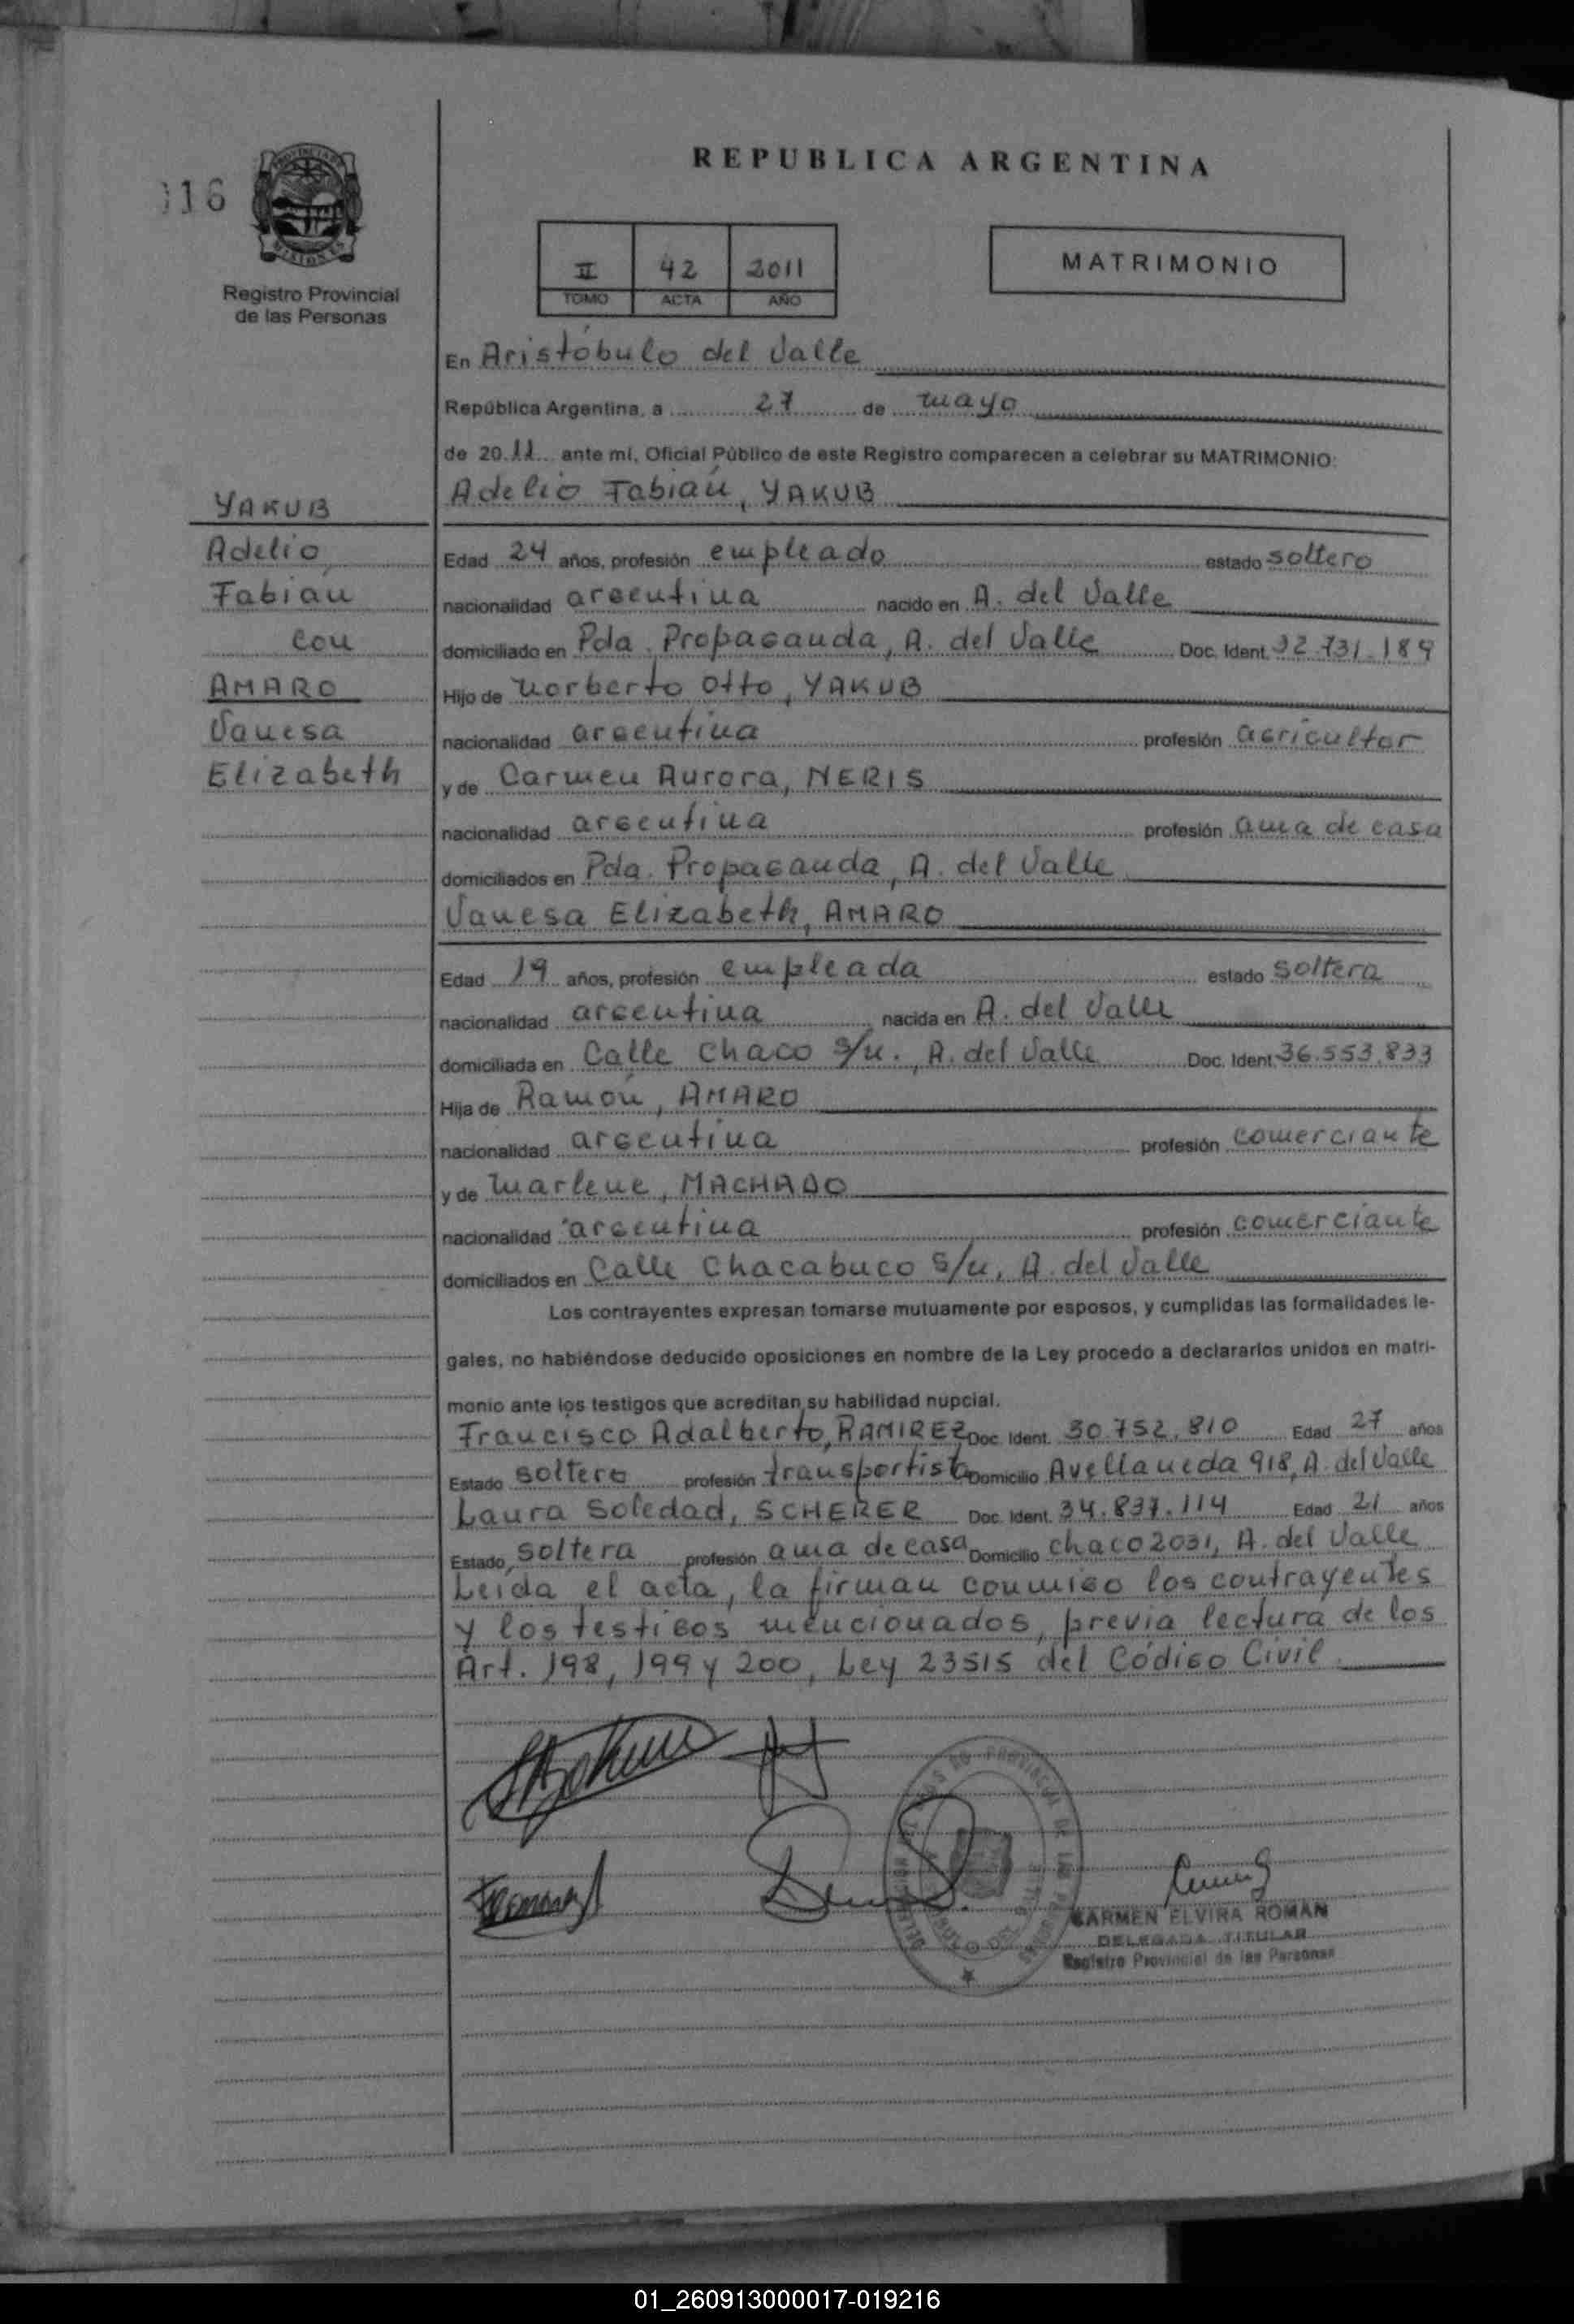 116
Registro Provincial
de las Personas
REPUBLICA ARGENTINA
II 42 2011
TOMO ACTA AÑO
MATRIMONIO
En Aristóbulo del Valle
República Argentina, a 27 de mayo
de 2011 ante mí, Oficial Público de este Registro comparecen a celebrar su MATRIMONIO:
Adelio Fabián, YAKUB
YAKUB
Adelio
Fabián
con
AMARO
Vanesa
Elizabeth
Edad 24 años, profesión empleado estado soltero
nacionalidad argentina nacido en A. del Valle
domiciliado en Pda. Propaganda, A. del Valle Doc. Ident. 32.731.189
Hijo de Norberto Otto, YAKUB
nacionalidad argentina profesión agricultor
y de Carmen Aurora, NERIS
nacionalidad argentina profesión ama de casa
domiciliados en Pda. Propaganda, A. del Valle
Vanesa Elizabeth, AMARO
Edad 19 años, profesión empleada estado soltera
nacionalidad argentina nacida en A. del Valle
domiciliada en Calle Chaco s/n., A. del Valle Doc. Ident. 36.553.833
Hija de Ramón, AMARO
nacionalidad argentina profesión comerciante
y de Marlene, MACHADO
nacionalidad argentina profesión comerciante
domiciliados en Calle Chacabuco s/n, A. del Valle
Los contrayentes expresan tomarse mutuamente por esposos, y cumplidas las formalidades le-
gales, no habiéndose deducido oposiciones en nombre de la Ley procedo a declararlos unidos en matri-
monio ante los testigos que acreditan su habilidad nupcial.
Francisco Adalberto, RAMIREZ Doc. Ident. 30.752.810 Edad 27 años
Estado soltero profesión transportista Domicilio Avellaneda 918, A. del Valle
Laura Soledad, SCHERER Doc. Ident. 34.837.114 Edad 21 años
Estado soltera profesión ama de casa Domicilio Chaco 2031, A. del Valle
Leida el acta, la firman conmigo los contrayentes
y los testigos mencionados, previa lectura de los
Art. 198, 199 y 200, Ley 23515 del Código Civil.
CARMEN ELVIRA ROMAN
DELEGADA TITULAR
Registro Provincial de las Personas
01_260913000017-019216